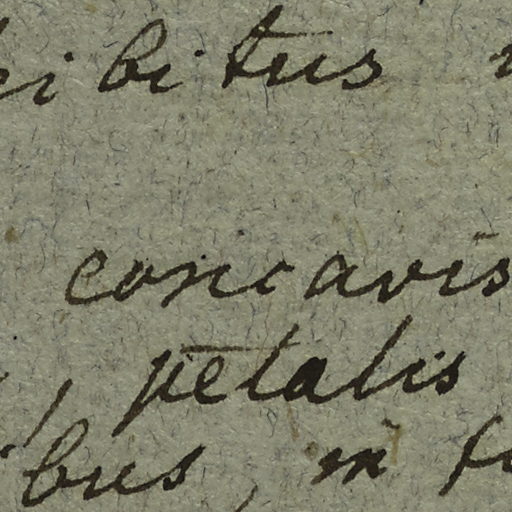 bibitus
concavis
, petalis
ibus, in